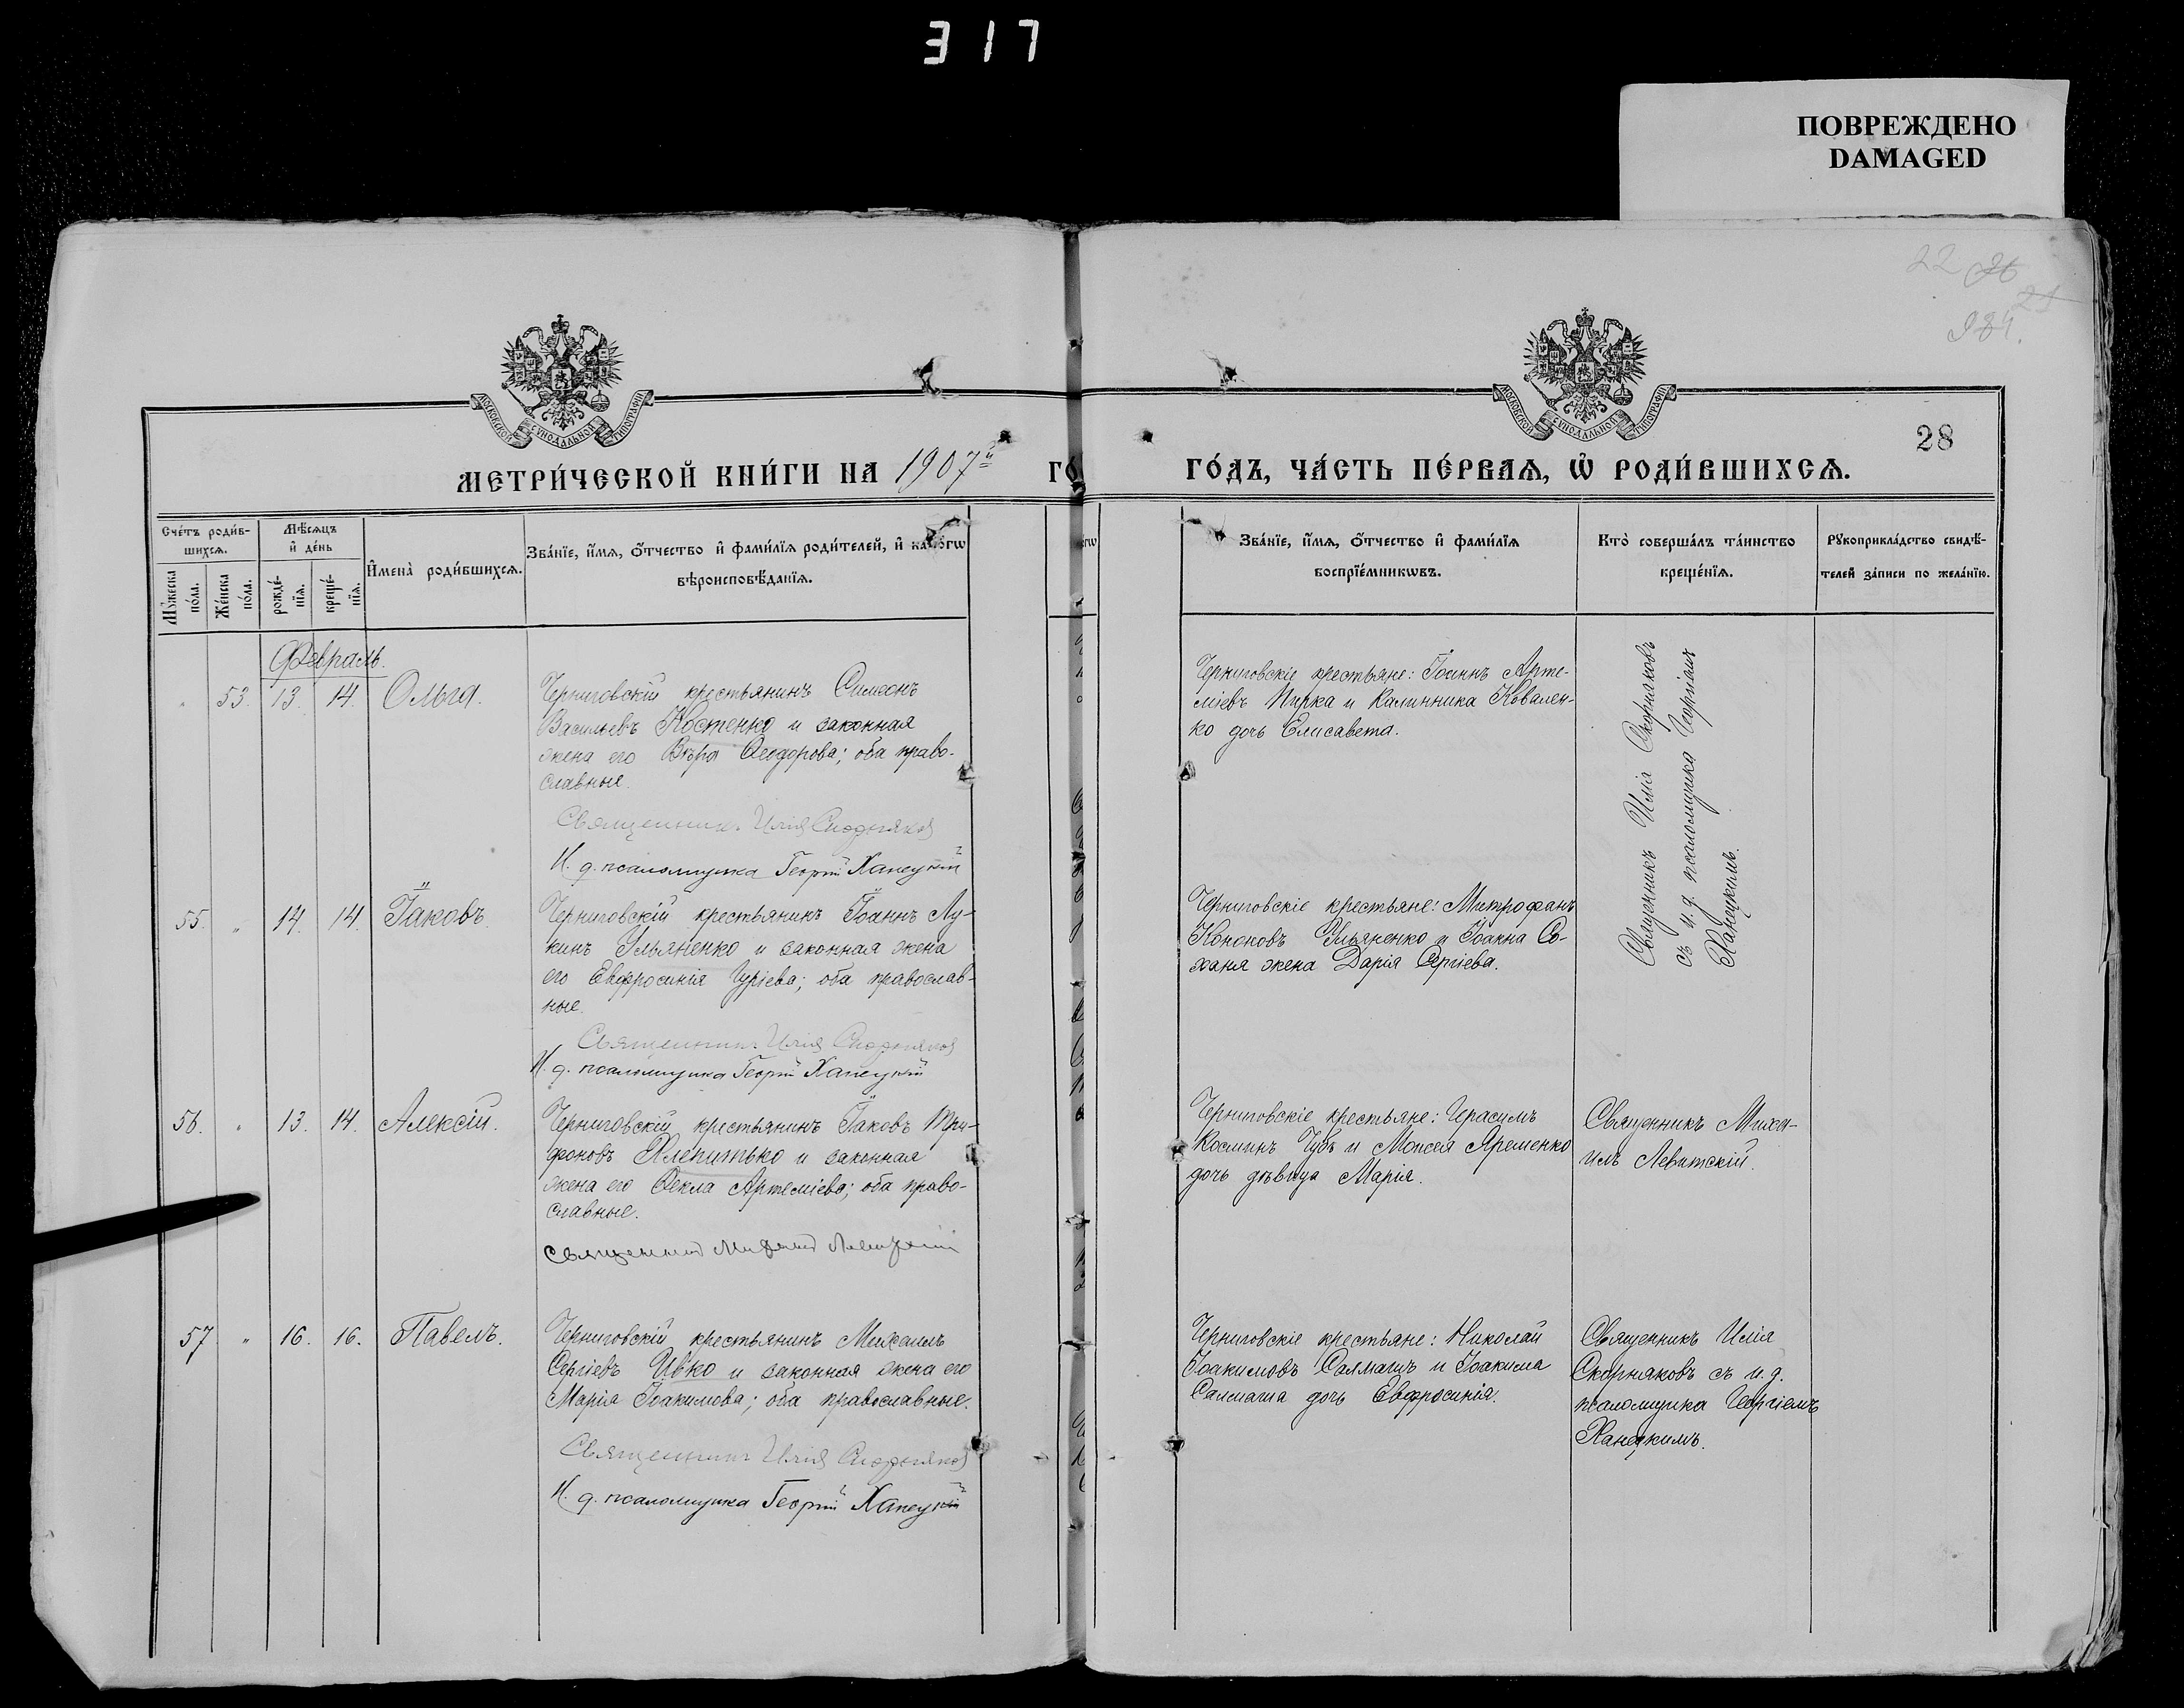 317
ПОВРЕЖДЕНО
DAMAGED
22 26
21
984.
28
МОСКОВСКОЙ СѴНОДАЛЬНОЙ ТИПОГРАФІИ
МОСКОВСКОЙ СѴНОДАЛЬНОЙ ТИПОГРАФІИ
МЕТРИ́ЧЕСКОЙ КНИ́ГИ НА 1907й ГО́
ГО́ДЪ, ЧА́СТЬ ПЕ́РВАѦ, Ѡ҆ РОДИ́ВШИХСѦ.
Сче́тъ роди́в-
шихсѧ.
Мꙋ́жеска по́ла.
Же́нска по́ла.
Мѣ́сѧцъ
и҆ де́нь
рожде́-
нїѧ.
креще́-
нїѧ.
И҆мена̀ роди́вшихсѧ.
Зва́нїе, и҆́мѧ, ѻ҆́тчество и҆ фами́лїѧ роди́телей, и҆ како́гѡ
вѣроисповѣ́данїѧ.
Зва́нїе, и҆́мѧ, ѻ҆́тчество и҆ фами́лїѧ
воспрїе́мникѡвъ.
Кто̀ соверша́лъ та́инство
креще́нїѧ.
Рꙋкоприкла́дство свидѣ́-
телей за́писи по жела́нїю.
Февраль.
" 53. 13. 14. Ольга.
Черниговскій крестьянинъ Симеонъ
Васильевъ Костенко и законная
жена его Вѣра Ѳеодорова; оба право-
славные.
Священникъ Илія Скорняковъ
И. д. псаломщика Георгій Ханецкій
Черниговскіе крестьяне: Іоаннъ Арте-
міевъ Пирка и Калинника Ковален-
ко дочь Елисавета.
Священникъ Илія Скорняковъ
съ и. д. псаломщика Георгіемъ
Ханецкимъ.
55. " 14. 14. Іаковъ.
Черниговскій крестьянинъ Іоаннъ Лу-
кинъ Ульяненко и законная жена
его Евфросинія Гуріева; оба православ-
ные.
Священникъ Илія Скорняковъ
И. д. псаломщика Георгій Ханецкій
Черниговскіе крестьяне: Митрофанъ
Кононовъ Ульяненко и Іоанна Со-
ханя жена Дарія Сергіева.
56. " 13. 14. Алексій.
Черниговскій крестьянинъ Іаковъ Три-
фоновъ Хлепитько и законная
жена его Ѳекла Артеміева; оба право-
славные.
Священникъ Михаилъ Левитскій
Черниговскіе крестьяне: Герасимъ
Косминъ Чубъ и Моисея Яременко
дочь дѣвица Марія.
Священникъ Миха-
илъ Левитскій.
57 " 16. 16. Павелъ.
Черниговскій крестьянинъ Михаилъ
Сергіевъ Ивко и законная жена его
Марія Іоакимова; оба православные.
Священникъ Илія Скорняковъ
И. д. псаломщика Георгій Ханецкій
Черниговскіе крестьяне: Николай
Іоакимовъ Салмашъ и Іоакима
Салмаша дочь Евфросинія.
Священникъ Илія
Скорняковъ съ и. д.
псаломщика Георгіемъ
Ханецкимъ.